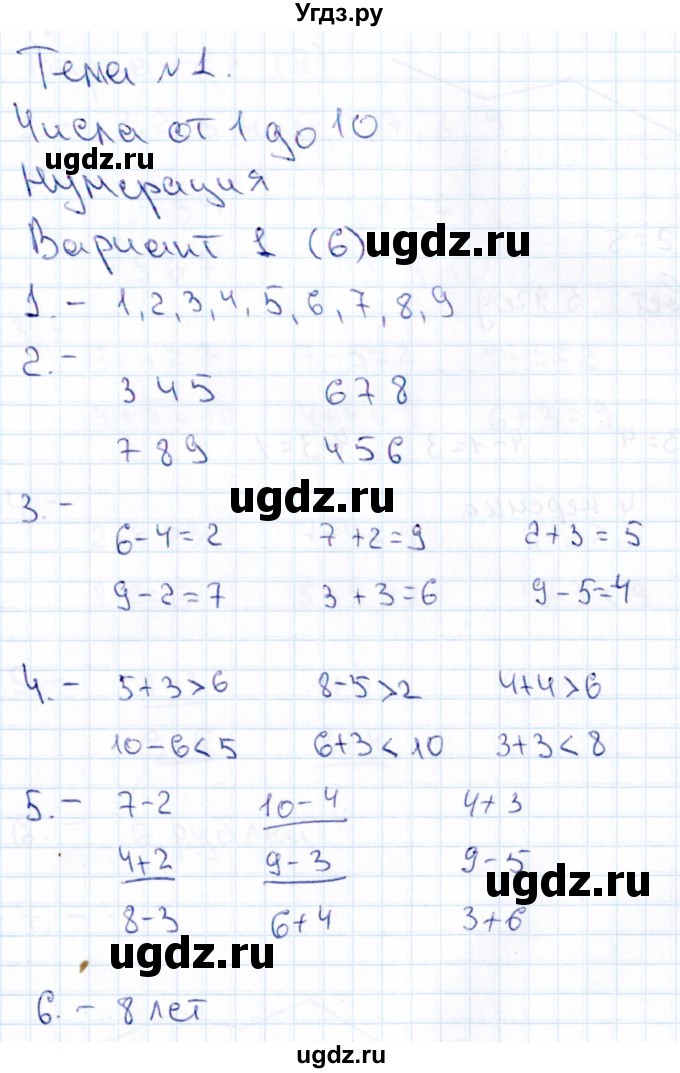 Угдз.ру
Тема №1.
Числа от 1 до 10
ugdz.ru
Нумерация
Вариант 1 (6) ugdz.ru
1. - 1, 2, 3, 4, 5, 6, 7, 8, 9
2. -
3 4 5 6 7 8
7 8 9 4 5 6
ugdz.ru
3. -
6-4=2 7+2=9 2+3=5
9-2=7 3+3=6 9-5=4
4. - 5+3>6 8-5>2 4+4>6
10-6<5 6+3<10 3+3<8
5. - 7-2 10-4 4+3
4+2 9-3 9-5
ugdz.ru
8-3 6+4 3+6
ugdz.ru
6. - 8 лет
ugdz.ru